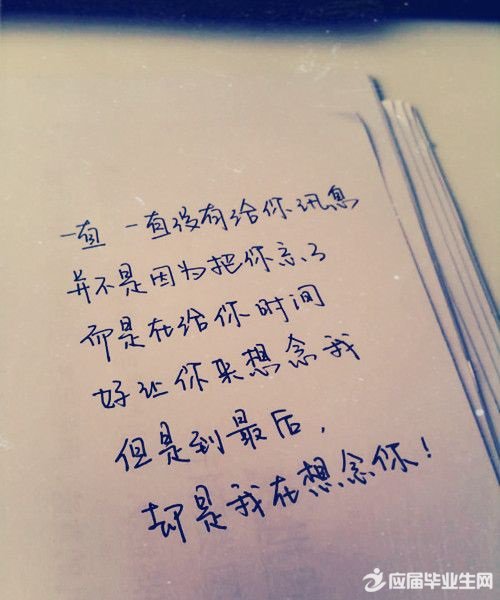 一直 一直没有给你讯息
并不是因为把你忘了
而是在给你时间
好让你来想念我
但是到最后，
却是我在想念你！
应届毕业生网